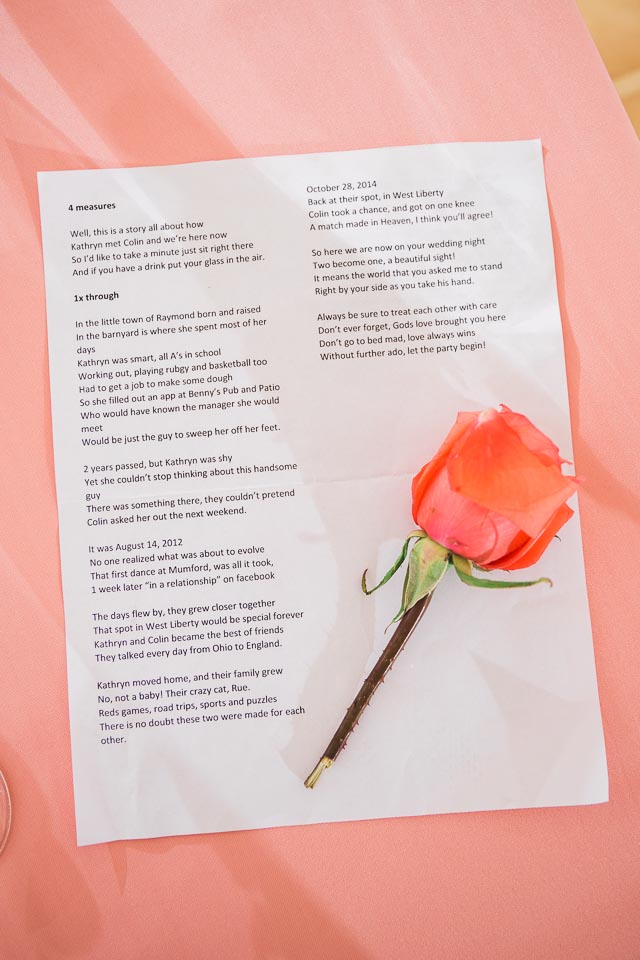 4 measures
Well, this is a story all about how
Kathryn met Colin and we're here now
So I'd like to take a minute just sit right there
And if you have a drink put your glass in the air.
1x through
In the little town of Raymond born and raised
In the barnyard is where she spent most of her
days
Kathryn was smart, all A's in school
Working out, playing rubgy and basketball too
Had to get a job to make some dough
So she filled out an app at Benny's Pub and Patio
Who would have known the manager she would
meet
Would be just the guy to sweep her off her feet.
2 years passed, but Kathryn was shy
Yet she couldn't stop thinking about this handsome
guy
There was something there, they couldn't pretend
Colin asked her out the next weekend.
It was August 14, 2012
No one realized what was about to evolve
That first dance at Mumford, was all it took,
1 week later "in a relationship" on facebook
The days flew by, they grew closer together
That spot in West Liberty would be special forever
Kathryn and Colin became the best of friends
They talked every day from Ohio to England.
Kathryn moved home, and their family grew
No, not a baby! Their crazy cat, Rue.
Reds games, road trips, sports and puzzles
There is no doubt these two were made for each
other.
October 28, 2014
Back at their spot, in West Liberty
Colin took a chance, and got on one knee
A match made in Heaven, I think you'll agree!
So here we are now on your wedding night
Two become one, a beautiful sight!
It means the world that you asked me to stand
Right by your side as you take his hand.
Always be sure to treat each other with care
Don't ever forget, Gods love brought you here
Don't go to bed mad, love always wins
Without further ado, let the party begin!